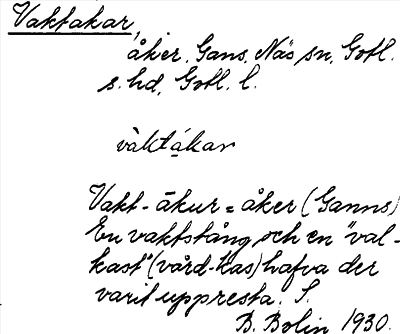 Vaktakar,
åker, Gans, Näs sn, Gotl.
s. hd, Gotl. l.
vàktákar
Vakt-åkur = åker (Ganns)
En vaktstång och en "val-
kast" (vård-kas) hafva der
varit uppresta. S.
B. Bolin 1930.